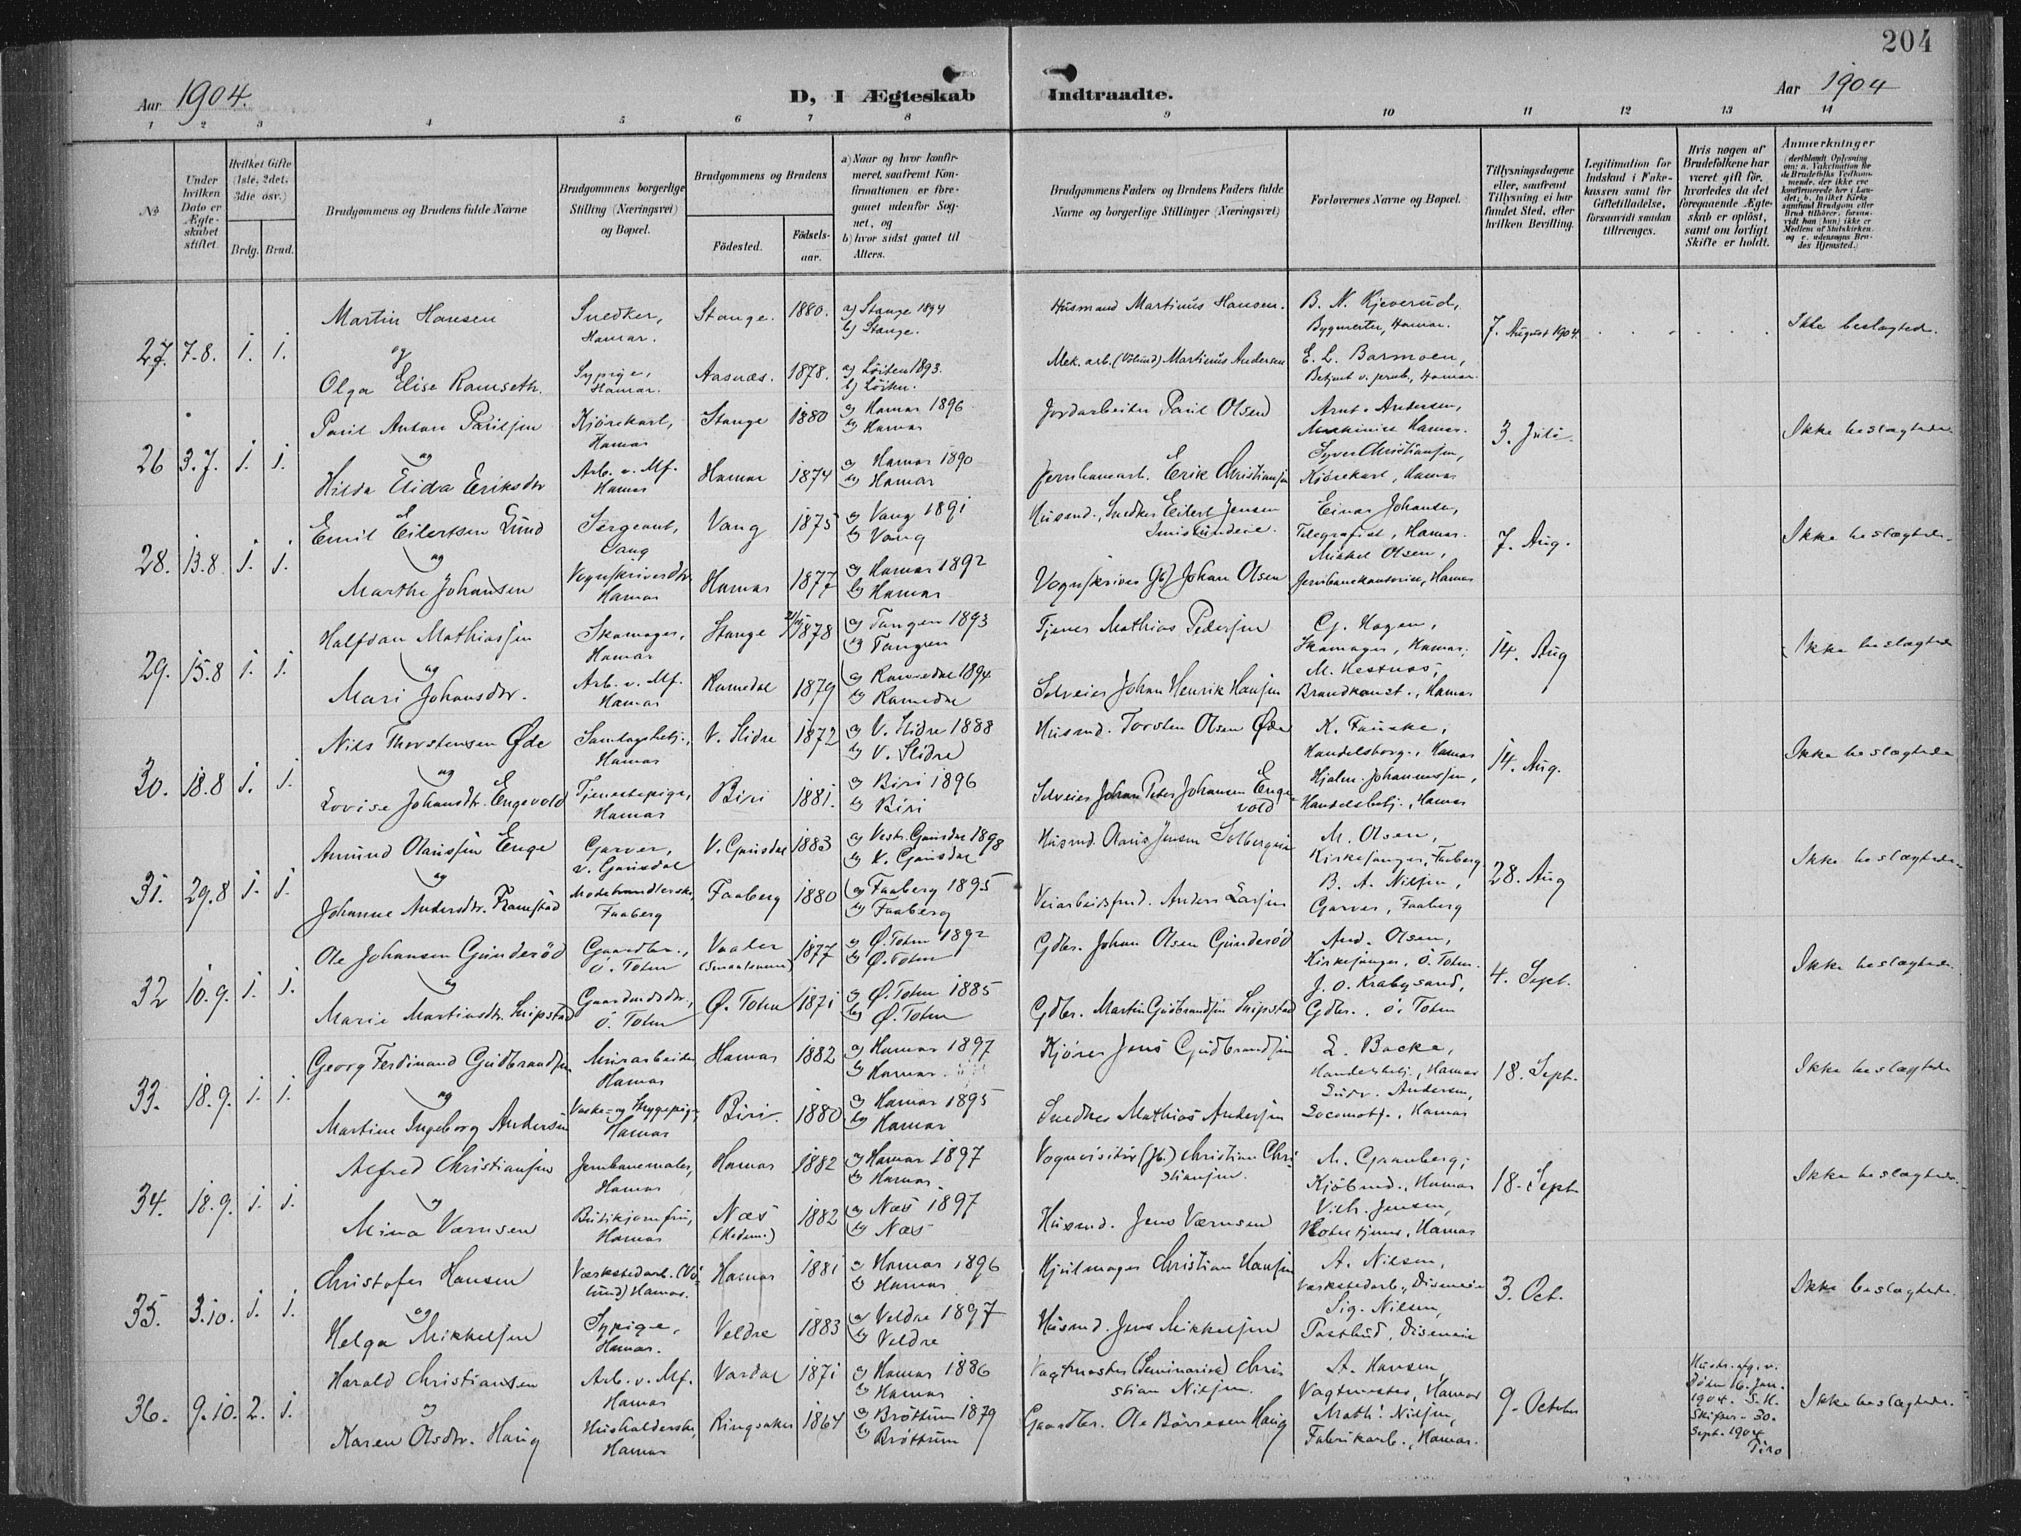 204
Aar 1904.
D, I Ægteskab Indtraadte.
Aar 1904
1 2 3 4 5 6 7 8 9 10 11 12 13 14
№
Under hvilken Dato er Ægteskabet stiftet.
Hvilket Gifte (1ste, 2det, 3die osv.)
Brdg. Brud.
Brudgommens og Brudens fulde Navne
Brudgommens borgerlige Stilling (Næringsvei) og Bopæl.
Brudgommens og Brudens
Fødested. Fødselsaar.
a) Naar og hvor konfirmeret, saafremt Konfirmationen er foregaaet udenfor Sognet, og
b) hvor sidst gaaet til Alters.
Brudgommens Faders og Brudens Faders fulde Navne og borgerlige Stillinger (Næringsvei)
Forlovernes Navne og Bopæl.
Tillysningsdagene eller, saafremt Tillysning ei har fundet Sted, efter hvilken Bevilling.
Legitimation for Indskud i Enkekassen samt for Giftetilladelse, forsaavidt saadan tiltrænges.
Hvis nogen af Brudefolkene har været gift før, hvorledes da det foregaaende Ægteskab er opløst, samt om lovligt Skifte er holdt.
Anmærkninger
27. 7.8. 1. 1. Martin Hansen Snedker, Hamar. Stange. 1880. a) Stange 1894 b) Stange. Husmand Martinus Hansen. B. N. Kjeverud, Bygmester, Hamar. 7. August 1904. Ikke beslægtede.
og
Olga Elise Ramseth. Sypige, Hamar. Aasnæs. 1878. a) Løiten 1893. b) Løiten. Mek. arb. (Vølund) Martinus Andersen E. L. Barmoen, Betjent v. jernb., Hamar.
26 3.7. 1. 1. Paul Anton Paulsen Kjørekarl, Hamar Stange 1880 a) Hamar 1896 b) Hamar Jordarbeider Paul Olsen Arnt Andersen, Maskinist Hamar. 3. Juli Ikke beslægtede
og
Hilda Elida Eriksdtr Arb. v. Mf. Hamar Hamar 1874 a) Hamar 1890 b) Hamar Jernbanearb. Erik Christiansen Syver Christiansen, Kjørekarl, Hamar
28. 13.8 1. 1. Emil Eilertsen Lund Sergeant, Vang Vang 1875 a) Vang 1891 b) Vang Husmd., Snedker Eilert Jensen Einar Johansen, Telegrafist, Hamar. 7. Aug. Ikke beslægtede.
og
Marthe Johansen Vognskriverdtr. Hamar Hamar 1877 a) Hamar 1892 b) Hamar Vognskriver Johan Olsen Mikkel Olsen, Jernbanekontorist, Hamar
29. 15.8 1. 1. Halfdan Mathiassen Skomager, Hamar Stange 1878 a) Tangen 1893 b) Tangen Tjener Mathias Pedersen C. Hagen, Skomager, Hamar. 14. Aug Ikke beslægtede
og
Mari Johansdtr. Arb. v. Mf. Hamar Romedal 1879 a) Romedal 1894 b) Romedal Selveier Johan Henrik Hansen M. Hestnæs, Brandkonst., Hamar
30. 18.8 1. 1. Nils Thorstensen Øde Samlagsbetj., Hamar V. Slidre 1872 a) V. Slidre 1888 b) V. Slidre Husmd. Torsten Olsen Øde K. Fauske, Handelsborg., Hamar 14. Aug. Ikke beslægtede
og
Lovise Johansdtr. Engevold Tjenestepige, Hamar Biri 1881. a) Biri 1896 b) Biri Selveier Johan Peter Johansen Engevold Hjalm. Johannessen, Handelsbetj., Hamar
31. 29.8 1. 1. Amund Olaussen Enge Garver, V. Gausdal V. Gausdal 1883 a) Vestr. Gausdal 1898 b) V. Gausdal Husmd Olaus Jensen M. Olsen, Kirkesanger, Faaberg 28. Aug Ikke beslægtede
og
Johanne Andersdtr. Framstad Modehandlerske, Faaberg Faaberg 1880 a) Faaberg 1895 b) Faaberg Veiarbeidsfmd. Anders Larsen B. A. Nilsen, Garver, Faaberg
32 10.9. 1. 1. Ole Johansen Gunderød Gaardbr., Ø. Toten Vaaler (Smaalenene) 1877 a) Ø. Toten 1892 b) Ø. Toten Gdbr. Johan Olsen Gunderød And. Olsen, Kirkesanger, Ø. Toten. 4. Sept. Ikke beslægtede.
og
Marie Martinsdtr. Snipstad Gaardmdsdtr., Ø. Toten Ø. Toten 1871 a) Ø. Toten 1885 b) Ø. Toten Gdbr. Martin Gudbrandsen Snipstad J. O. Krabysand, Gdbr., Ø. Toten
33. 18.9. 1. 1. Georg Ferdinand Gudbrandsen Murarbeider, Hamar Hamar 1882 a) Hamar 1897 b) Hamar. Kjører Jens Gudbrandsen L. Backe, Handelsbetj., Hamar 18. Sept. Ikke beslægtede
og
Martine Ingeborg Andersen Vaske- og Strygepige, Hamar Biri. 1880. a) Hamar 1895 b) Hamar Snedker Mathias Andersen Ludv. Andersen, Locomotf., Hamar
34. 18.9. 1. 1. Alfred Christiansen Jernbanemaler, Hamar Hamar 1882 a) Hamar 1897 b) Hamar. Vognvisitør (Jb.) Christian Christiansen. M. Granberg, Kjøbmd., Hamar 18. Sept. Ikke beslægtede.
og
Mina Værnsen Butikjomfru, Hamar Næs (Hedem.) 1882 a) Næs 1897 b) Næs Husmd. Jens Værnsen Vilh. Jensen, Hamar
35. 3.10. 1. 1. Christofer Hansen Værkstedarb. (Vølund) Hamar. Hamar 1881 a) Hamar 1896 b) Hamar. Hjulmager Christian Hansen A. Nilsen, Værkstedarb., Disenveien 3. Oct. Ikke beslægtede.
og
Helga Mikkelsen Sypige, Hamar. Veldre 1883 a) Veldre 1897 b) Veldre Husmd. Jens Mikkelsen Sig. Nilsen, Postbud, Disenveien
36. 9.10. 2. 1. Harald Christiansen Arb. v. Mf. Hamar Vardal 1871 a) Hamar 1886 b) Hamar Vagtmester (Seminariet) Christian Nilsen. A. Hansen, Vagtmester, Hamar 9. October Hustr. afg. v. Døden 16. Jan. 1904. S. H. Skifter. 30. Sept. 1904 Ikke beslægtede.
og
Karen Olsdtr. Haug Husholderske, Hamar Ringsaker 1864 a) Brøttum 1879 b) Brøttum Gaardbr. Ole Børresen Haug Math. Nilsen, Fabrikarb., Hamar.